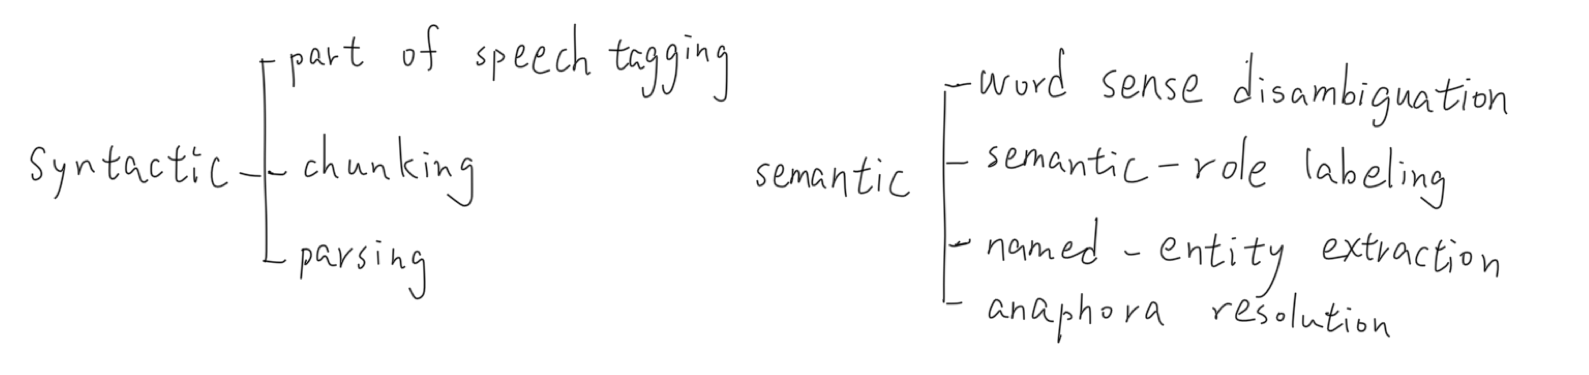 syntactic
part of speech tagging
chunking
parsing
semantic
word sense disambiguation
semantic-role labeling
named-entity extraction
anaphora resolution